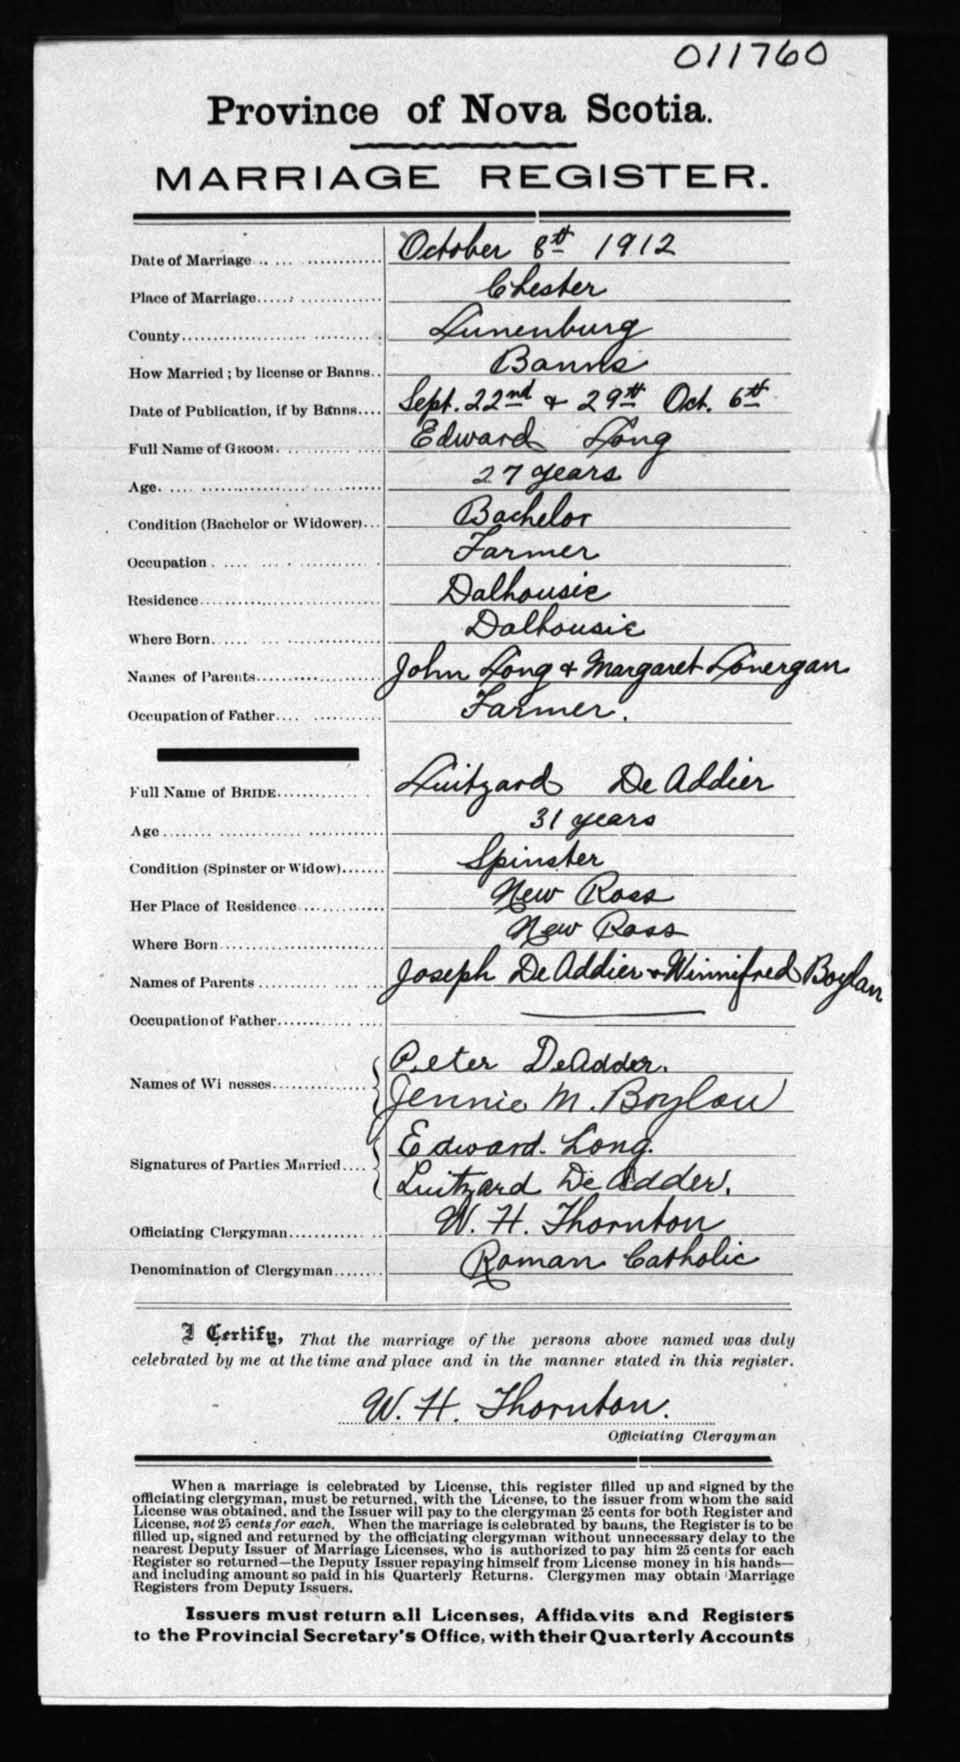 011760
Province of Nova Scotia.
MARRIAGE REGISTER.
Date of Marriage October 8th 1912
Place of Marriage Chester
County Lunenburg
How Married; by license or Banns Banns
Date of Publication, if by Banns Sept. 22nd & 29th Oct. 6th
Full Name of GROOM Edward Long
Age 27 years
Condition (Bachelor or Widower) Bachelor
Occupation Farmer
Residence Dalhousie
Where Born Dalhousie
Names of Parents John Long & Margaret Lonergan
Occupation of Father Farmer.
Full Name of BRIDE Luitgard De Addier
Age 31 years
Condition (Spinster or Widow) Spinster
Her Place of Residence New Ross
Where Born New Ross
Names of Parents Joseph De Addier & Winnifred Boylan
Occupation of Father
Peter DeAdder.
Names of Wi nesses Jennie M. Boylan
Edward Long.
Signatures of Parties Married
Luitzard De Adder.
Officiating Clergyman W. H. Thornton
Denomination of Clergyman Roman Catholic
I Certify, That the marriage of the persons above named was duly
celebrated by me at the time and place and in the manner stated in this register.
W. H. Thornton.
Officiating Clergyman
When a marriage is celebrated by License, this register filled up and signed by the
officiating clergyman, must be returned, with the License, to the issuer from whom the said
License was obtained, and the Issuer will pay to the clergyman 25 cents for both Register and
License, not 25 cents for each. When the marriage is celebrated by banns, the Register is to be
filled up, signed and returned by the officiating clergyman without unnecessary delay to the
nearest Deputy Issuer of Marriage Licenses, who is authorized to pay him 25 cents for each
Register so returned—the Deputy Issuer repaying himself from License money in his hands—
and including amount so paid in his Quarterly Returns. Clergymen may obtain Marriage
Registers from Deputy Issuers.
Issuers must return all Licenses, Affidavits and Registers
to the Provincial Secretary's Office, with their Quarterly Accounts